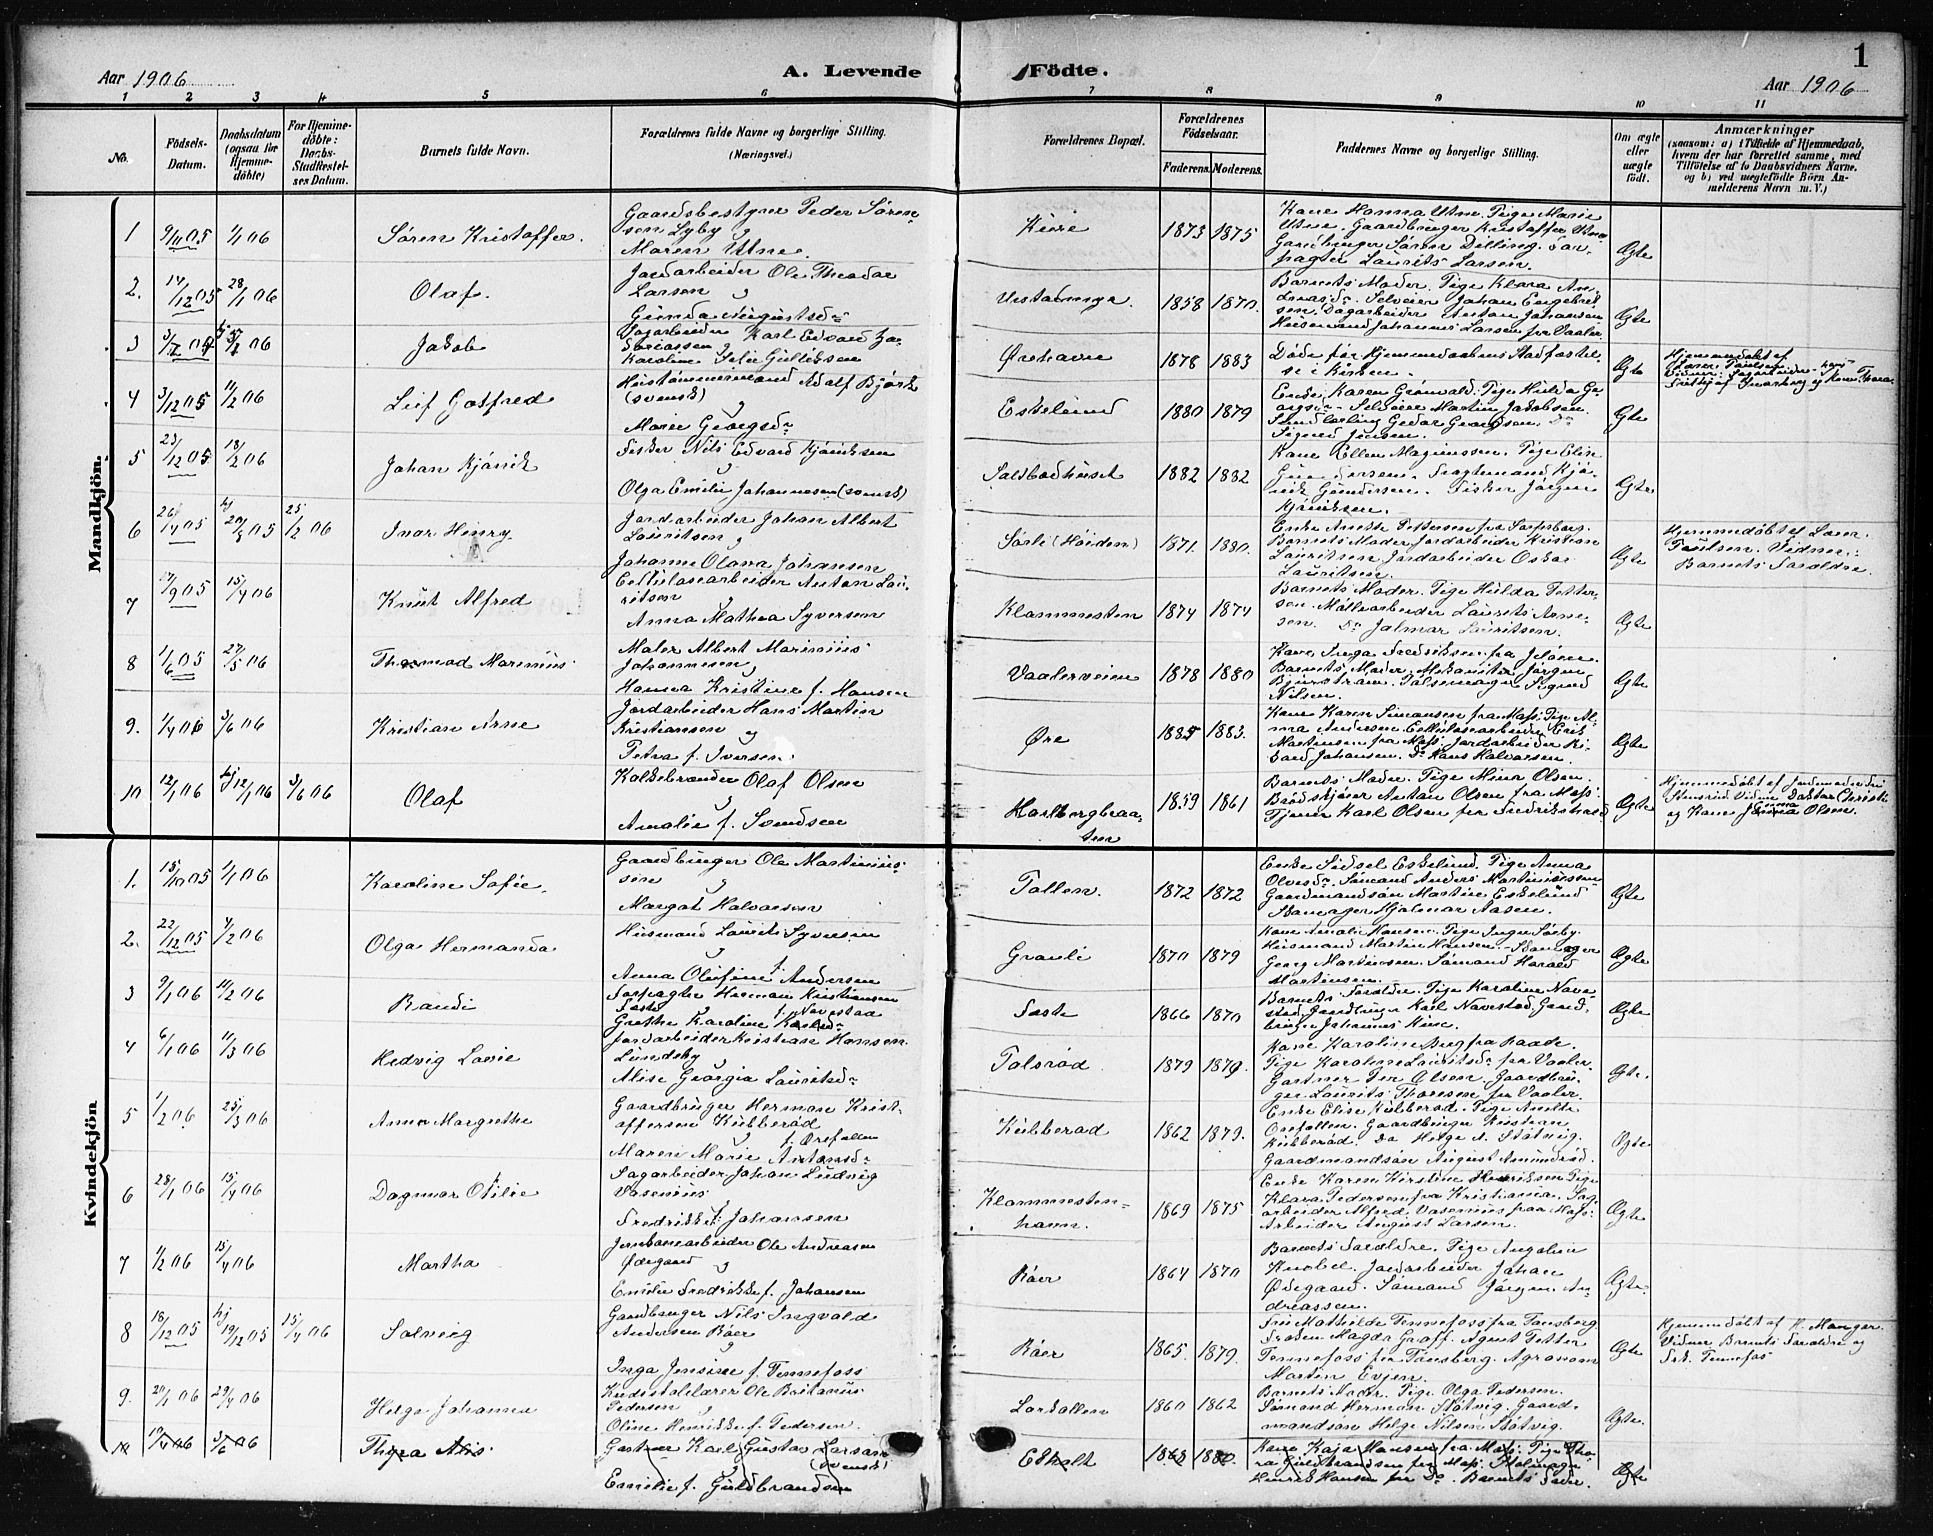 1
Aar 1906
A. Levende Födte.
Aar 1906
1 2 3 4 5 6 7 8 9 10 11
No.
Födsels-
Datum.
Daabsdatum
(ogsaa for
Hjemme-
döbte)
For Hjemme-
döbte:
Daabs-
Stadfæstel-
ses Datum.
Barnets fulde Navn.
Forældrenes fulde Navne og borgerlige Stilling.
(Næringsvei.)
Forældrenes Bopæl.
Forældrenes
Födselsaar.
Faderens. Moderens.
Faddernes Navne og borgerlige Stilling.
Om ægte
eller
uægte
födt.
Anmærkninger
(saasom: a) i Tilfælde af Hjemmedaab,
hvem der har forrettet samme, med
Tilföielse af to Daabsvidners Navne,
og b) ved uægtefödte Börn An-
melderens Navn m. V.)
Mandkjön.
1 9/11 05 1/1 06 Sören Kristoffer.
Gaardsbestyrer Peder Sören-
sen Lyby og
Maren Utne.
Kure 1873 1875
Kone Hanna Utne. Pige Marie
Utne. Gaardbruger Kristoffer Utne
Gaardbruger Sören Dilling. For-
pagter Laurits Larsen.
Ægte
2. 14/12 05 28/1 06 Olaf.
Jordarbeider Ole Theodor
Larsen og
Gunda Augustsdr
1858 1870.
Barnets Moder. Pige Klara An-
dreasdr. Selveier Johan Engebret-
sen. Dagarbeider Anton Johansen
Husmand Johannes Larsen fra Vaaler
Ægte
3 Jakob
Sagarbeider Karl Edvard Za-
kariassen og
Karoline Gulliksen
Örehavn 1878 1883
Döde för Hjemmedaabens Stadfæstel-
se i Kirken.
Ægte
Hjemmedöbt af
Lærer Paulsen
4 3/12 05 11/2 06 Leif Gotfred
Hustömmermand Adolf Björk
(svensk) og
Marie Georgsdr
Eskelund 1880 1879
Enke Karen Grönvald. Pige Hulda Ge-
orgsdr. Selveier Martin Jakobsen.
Sigurd Jensen.
Ægte
5 23/12 05 18/2 06 Johan Kjönik
Fisker Nils Edvard Kjöniksen
og
Olga Emilie Johannesen (svensk)
Saltbodhuset 1882 1882
Kone Ellen Magnussen. Pige Elise
Gundersen. Fragtemand Kjö-
nik Gundersen. Fisker Jörgen
Kjöniksen.
Ægte
6 26/4 05 hj 20/8 05 25/2 06 Ivar Henry
Jordarbeider Johan Albert
Lauritsen og
Johanne Olava Johansen
Sörli (Höiden) 1871. 1880.
Enke Anette Pettersen fra Sarpsborg.
Barnets Moder Jordarbeider Kristian
Lauritsen Jordarbeider Oskar
Lauritsen.
Ægte
Hjemmedöbt af Lærer
Paulsen. Vidner:
Barnets Forældre.
7 27/9 05 15/4 06 Knut Alfred
Cellulosearbeider Anton Lau-
ritsen og
Anna Mathea Syversen
Klommesten 1874 1874
Barnets Moder. Pige Hulda Petter-
sen. Möllearbeider Laurits Arne-
sen. Do Jalmar Lauritsen.
Ægte
8 1/6 05 27/5 06 Thormod Marinius
Maler Albert Marinius
Johannesen og
Hansea Kristine f. Hansen
Vaalerveien 1878 1880
Kone Inga Fredriksen fra Jelöen.
Barnets Moder. Mekaniker Jörgen
Björnstrøm. Pölsemager Sigurd
Nilsen.
Ægte
9. 1/4 06 3/6 06 Kristian Arne
Jordarbeider Hans Martin
Kristiansen og
Petra f. Iversen.
Öre 1885 1883.
Kone Karen Simonsen fra Moss. Pige Al-
ma Andersen. Cellulosearbeider Erik
Martinsen fra Moss. Jordarbeider Ri-
kard Johansen. Do Hans Halvorsen.
Ægte
10 12/1 06 hj 12/1 06 3/6 06 Olaf
Kalkbrænder Olaf Olsen
og
Amalie f. Svendsen
Karlborgbraa-
ten 1859 1861
Barnets Moder. Pige Mina Olsen.
Brödskjörer Anton Olsen fra Moss.
Tjener Karl Olsen fra Fredrikstad
Ægte
Hjemmedöbt af Jordmoder
og Kone Olsen.
Kvindekjön
1. 15/10 05 1/1 06 Karoline Sofie.
Gaardbruger Ole Martinius-
sen og
Margot Halvorsen
Tollen. 1872 1872
Enke Sidsel Eskelund. Pige Anna
Olvesdr. Sömand Anders Martiniussen
Gaardmandsön Martin Eskelund
Skomager Hjalmar Aasen.
Ægte
2. 22/12 05 4/2 06 Olga Hermanda
Husmand Laurits Syversen
og
Anna Olufine f. Andersen
Granli 1870 1879
Kone Amalie Hansen. Pige Inga Söeby.
Husmand Martin Hansen. Skomager
Georg Martinsen. Sömand Harald
Martinsen.
Ægte
3 9/1 06 11/2 06 Randi
Forpagter Herman Kristiansen
Faste f. Navestad
Grethe Karoline Karlsdr
Faste 1866 1870
Barnets Forældre. Pige Karoline Nave-
stad, Gaardbruger Karl Navestad, Gaard-
bruger Johannes Kure.
Ægte
4 6/1 06 11/3 06 Hedvig Lovise
Jordarbeider Kristian Hansen
Lundeby og
Alise Georgia Lauritsdr
Tolsröd 1879 1879.
Kone Karoline Berg fra Raade.
Pige Karoline Lauritsdr fra Vaaler
Gartner Per Olsen. Gaardbru-
ger Laurits Thoresen fra Vaaler.
Ægte.
5 1/2 06 25/3 06 Anna Margrethe
Gaardbruger Herman Krist-
offersen Kubberöd
og f. Orefallen
Maren Marie Antonsdr
Kubberöd 1862 1879.
Enke Elise Kubberöd. Pige Anette
Orefallen. Gaardbruger Kristian
Kubberöd. Do Helge A. Støtvig.
Gaardmandsön August Amundröd.
Ægte
6 28/1 06 15/4 06 Dagmar Otilie
Sagarbeider Johan Ludvig
Vasenius
Fredrikke f. Johansen
Klommesten-
havn. 1869 1875
Enke Karen Kirstine Henriksen Pige
Klara Pedersen fra Kristiania. Sag-
arbeider Alfred Vasenius fra Moss.
Arbeider August Larsen.
Ægte
7 1/2 06 15/4 06 Martha
Jernbanearbeider Ole Andreasen
Ödegaard og
Emilie Fredrikke f. Johansen
Röer 1864 1870
Barnets Forældre. Pige Angelin
Knobel. Jordarbeider Johan
Ödegaard. Sömand Jörgen An-
dreassen.
Ægte.
8 18/12 05 hj 19/12 05 15/4 06 Solveig
Gaardbruger Nils Ingvald
Andersen Röer
og
Inga Jensine f. Tennefoss
Röer 1865. 1879.
Frk Mathilde Tennefoss fra Tønsberg
Fröken Magda Graff. Agent Petter
Tennefoss fra Tönsberg. Agronom
Martin Evjen.
Ægte
Hjemmedöbt af
Vidner Barnets Forældre og
Frk. Tennefos
9. 20/1 06 29/4 06 Helga Johanna
Ole Britanius
Pedersen og
Oline Henrikke f. Pedersen.
Larkollen 1860 1862
Barnets Moder. Pige Olga Pedersen.
Sömand Herman Støtvig. Gaard-
mandsön Helge Nilsen Støtvig.
Ægte.
10 19/4 06 3/6 06 Thyra Alis
Gartner Karl Gustav Larsson
og (svensk)
Emilie f. Guldbrandsen
Edholt 1868 1880.
Kone Kaja Hansen fra Moss. Pige Tho-
ra Guldbrandsen fra Moss.
Henrik Hansen fra Do. Barnets Fader.
Ægte